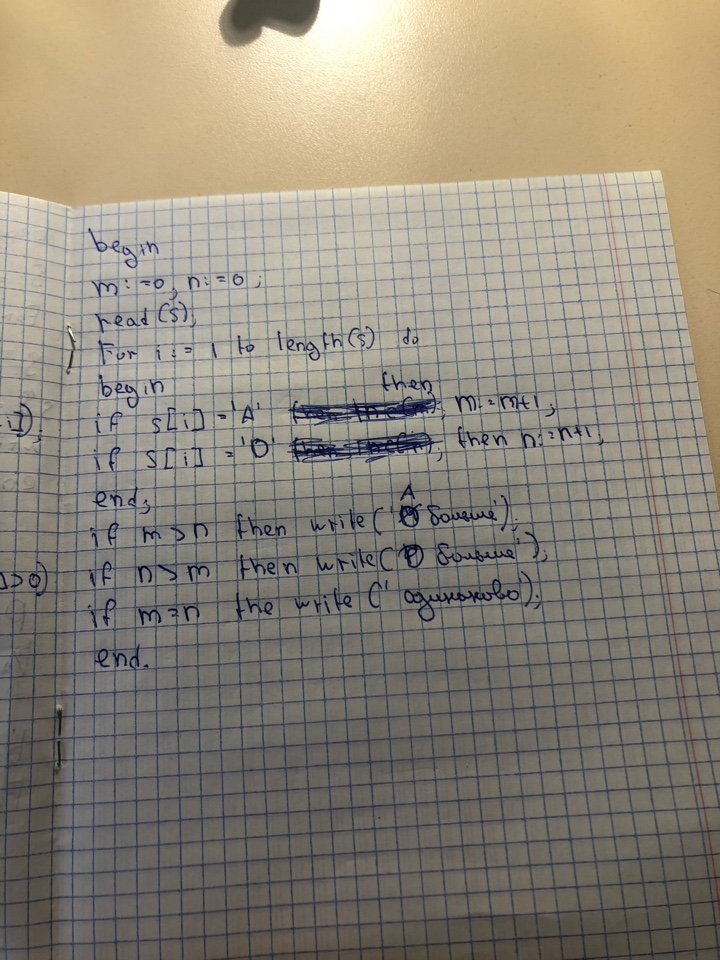 begin
m:=0; n:=0;
read(s);
For i:= 1 to length(s) do
begin
then
if s[i] ='A' ; m:=m+1;
if s[i] ='O' ; then n:=n+1;
end;
if m>n then write('А больше');
if n>m then write('О больше');
if m=n the write (' одинаково);
end.
i]);
>0)